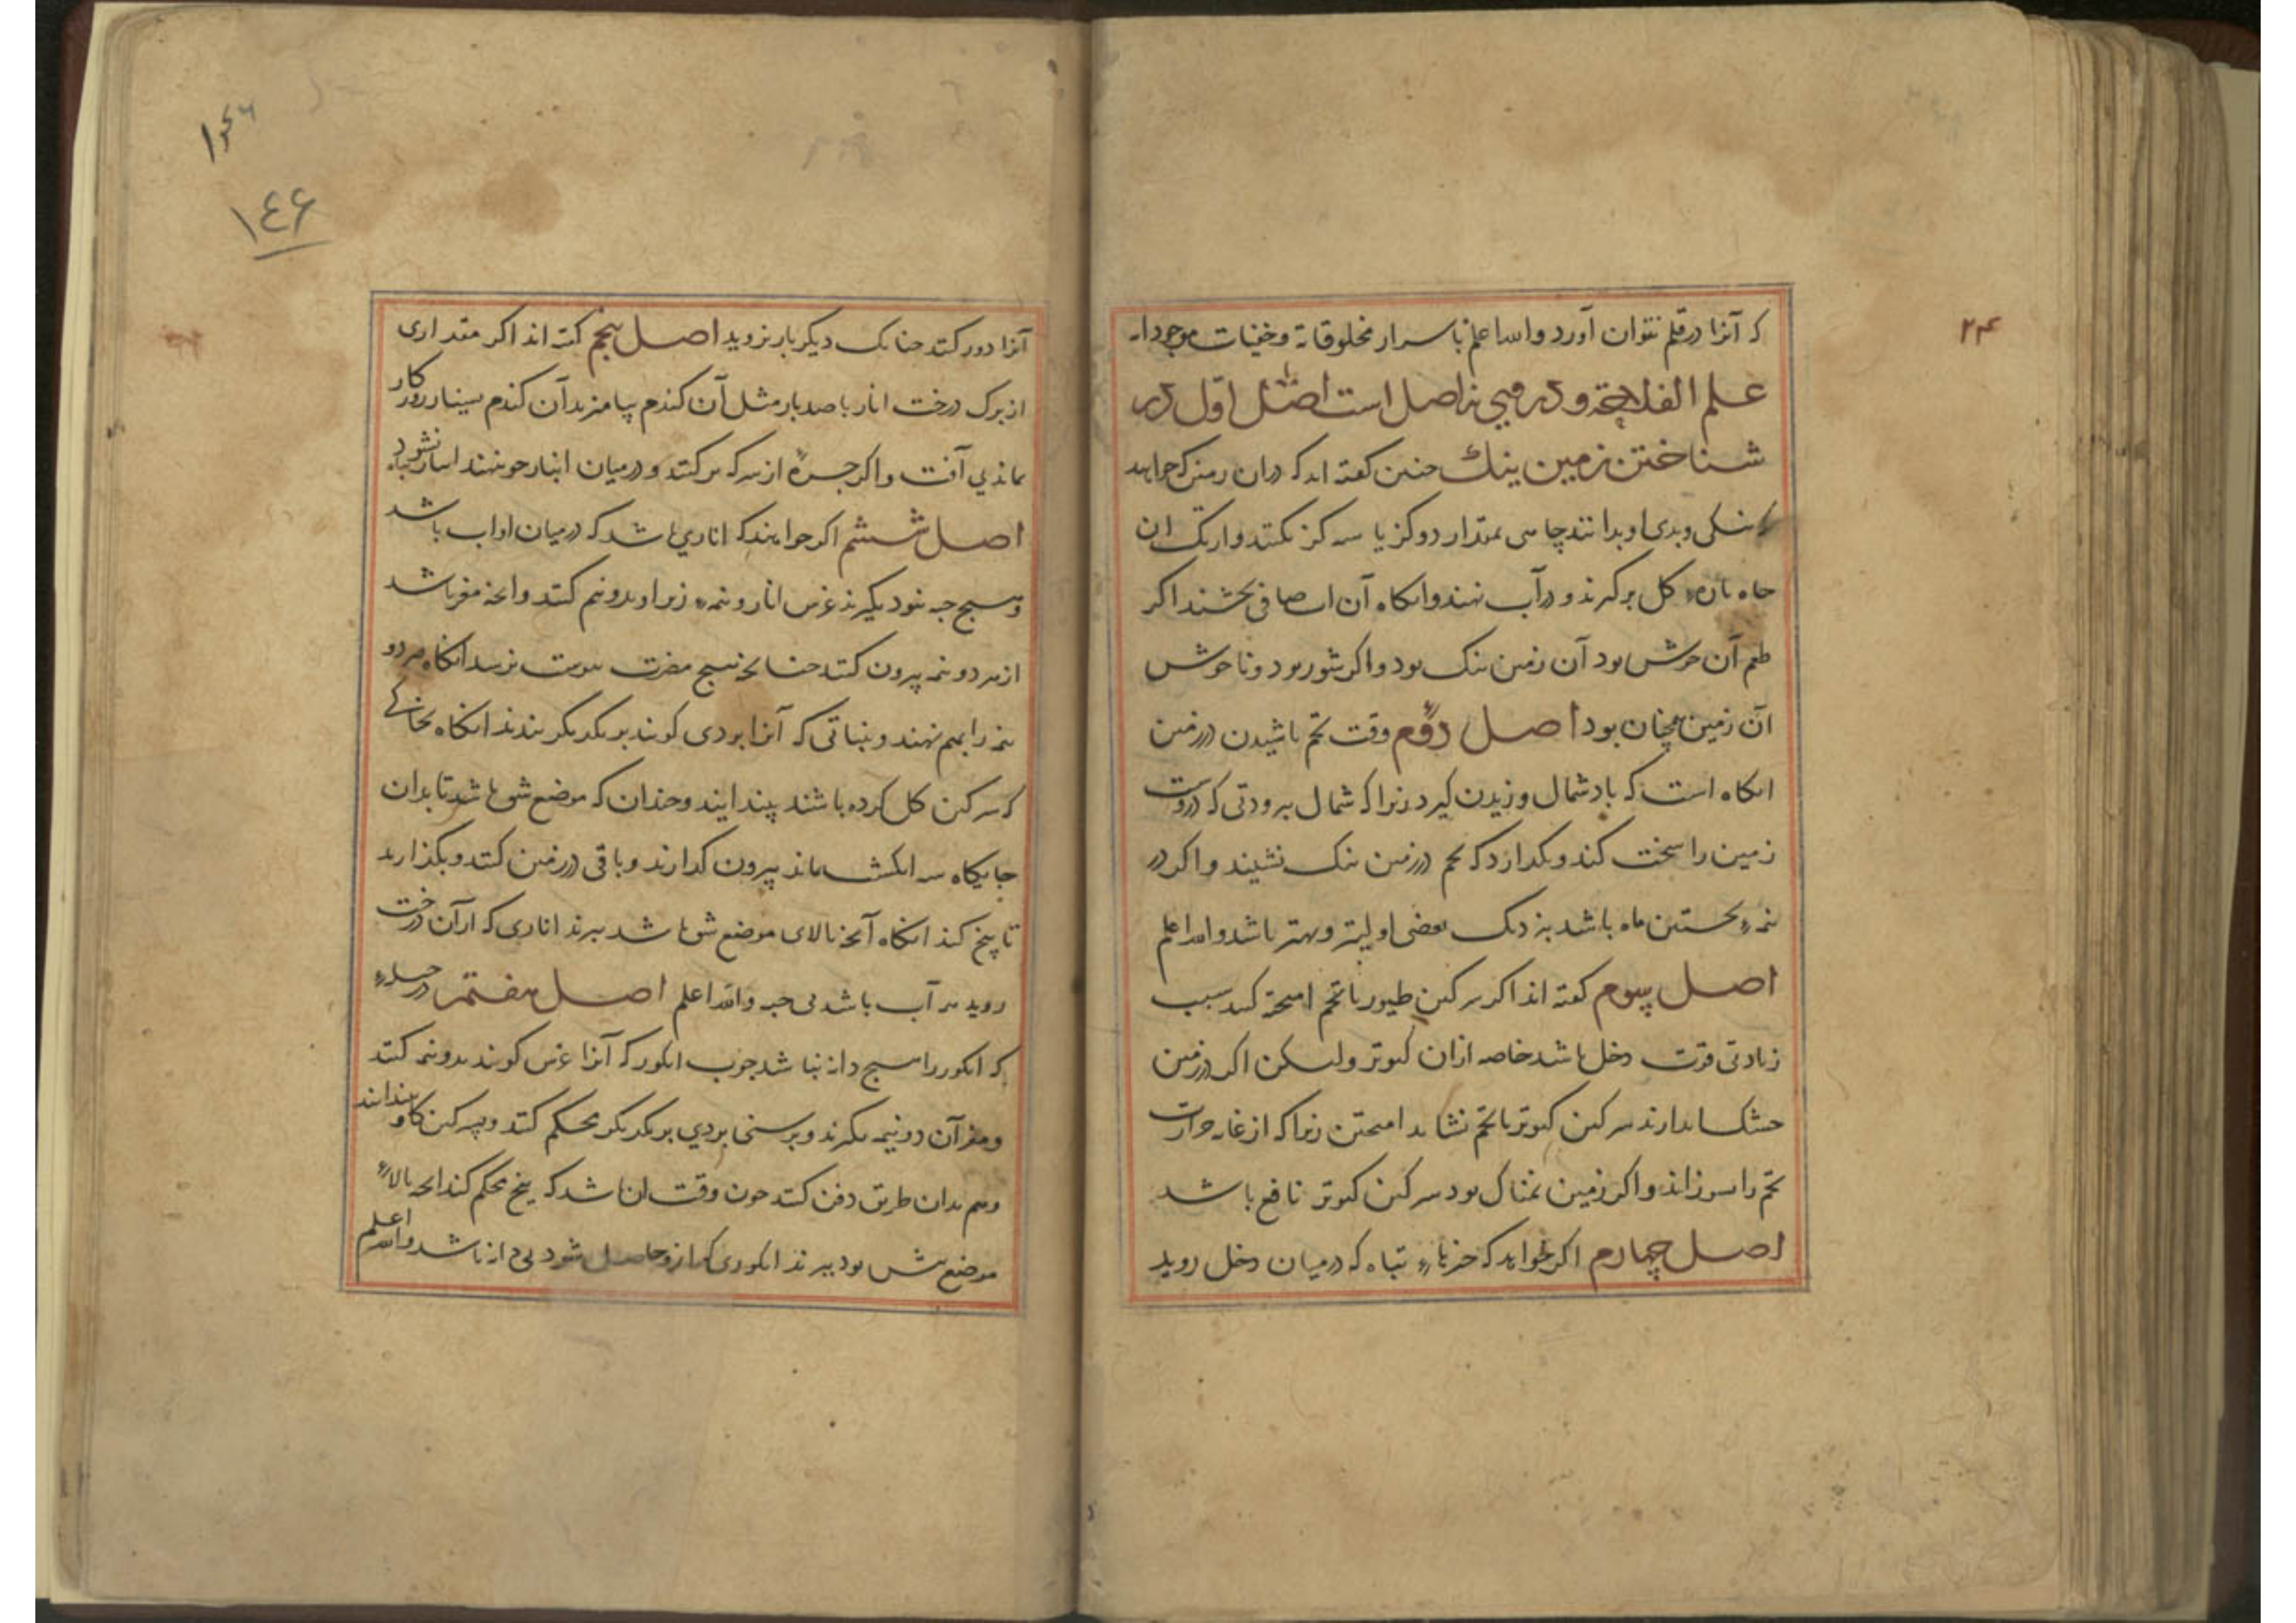 ۲۴
که آنرا در قلم نتوان آورد والله اعلم باسرار مخلوقاته وخفیات موجودا
علم الفلاحة و درو می نه اصل است اصل اول در
شناختن زمین نیک چنین گفته اند که دران زمین که خواهند
نیکی و بدی او بدانند چاهی بمقدار دو گز یا سه گز بکنند و از تک آن
چاه پاره گل برگیرند و در آب نهند و آنگاه آن آب صافی بچشند اکر
طعم آن خوش بود آن زمین نیک بود و اکر شور بود و ناخوش
آن زمین همچنان بود اصل دوم وقت تخم پاشیدن در زمین
آنگاه است که باد شمال وزیدن گیرد زیرا که شمال ببرودتی که دروست
زمین را سخت کند و نگذارد که تخم در زمین نیک نشیند و اکر در
نیمه نخستین ماه باشد بنزدیک بعضی اولیتر و بهتر باشد والله اعلم
اصل سوم کفته اند اکر سرکین طیور با تخم آمیخته کنند سبب
زیادتی قوت دخل باشد خاصه ازان کبوتر ولیکن اکر در زمین
خشک بدارند سرکین کبوتر با تخم نشاید آمیختن زیرا که از غایت حرارت
تخم را بسوزاند و اکر زمین نمناک بود سرکین کبوتر نافع باشد
اصل چهارم اکر خواهد که چیزهاء تباه که درمیان دخل روید
۱۴۶
۱۴۶
آنرا دور کنند چنانک دیکر بار نروید اصل پنجم کفته اند اکر مقداری
از برک درخت انار با صد بار مثل آن کندم بیامیزند آن کندم بسیار روزکار
بماند بی آفت و اکر جره از سرکه پر کنند و درمیان انبار جو نهند انبار تباه نشود
اصل ششم اکر خواهند که اناری باشد که درمیان او آب باشد
و هیچ حبه نبود بگیرند غرس انار و نیمه زیر او بدو نیم کنند و آنچه مغز باشد
از هر دو نیمه بیرون کنند چنانچه هیچ مضرت بپوست نرسد آنگاه هر دو
نیمه را بهم نهند و بنباتی که آنرا بردی کویند بر یکدیگر بندند آنگاه بخاکی
که سرکین کل کرده باشند بیندایند و چندان که موضع شق باشد تا بدان
جایگاه سه انگشت ماند بیرون گذارند و باقی در زمین کنند و بگذارند
تا بیخ کند آنگاه آنچه بالای موضع شق باشد ببرند اناری که از آن درخت
روید پر آب باشد بی حبه والله اعلم اصل هفتم در حیله
که انکور را هیچ دانه نباشد چوب انکور که آنرا غرس کویند بدو نیمه کنند
و مغز آن دو نیمه بگیرند و برسنی بردی بر یکدیگر محکم کنند و بسرکین کاو بیندایند
و هم بدان طریق دفن کنند چون وقت آن باشد که بیخ محکم کند آنچه بالاء
موضع شق بود ببرند انکوری که ازو حاصل شود بی دانه باشد والله اعلم